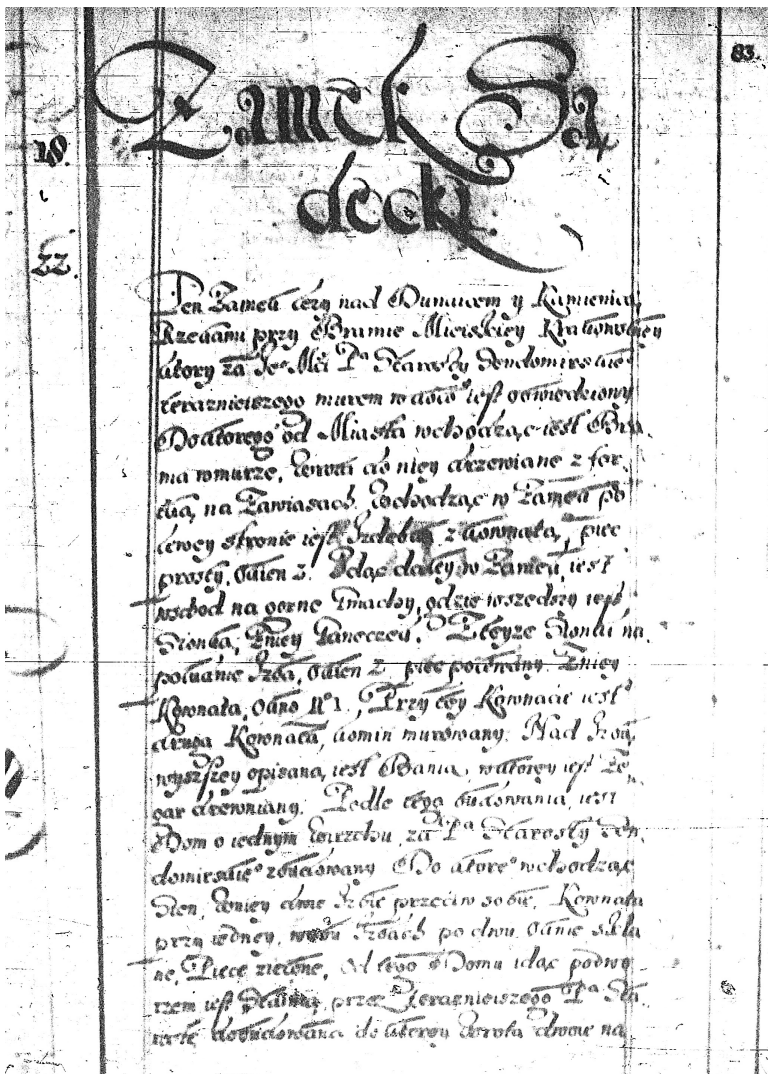 83.
Zamek Są
decki.
18.
22.
Ten Zamek leży nad Dunaicem y Kamienicą
Rzekami przy Bramie Mieiskiey Krakowskiey
ktory za Je° Mći Pª Starosty Sendomirskie°
terazniejszego murem w koło iest obwiedziony
Do ktorego od Miasta wchodząc iest Bra
ma w murze, Wrota do niey drzewiane z for
tką, na Zawiasach. Wchodząc w Zamek po
lewey stronie iest Izdebka z Komnatą, piec
prosty, Okien 2. Idąc daley w Zamek, iest
wschod na gorne Gmachy, gdzie wszedszy iest
Sionka, Zniey Ganeczek. Z teyze Sionki na
Izba, Okien 2. piec polewany. Zniey
Komnata, Okno N° 1. Przy tey Komnacie iest
druga Komnata, komin murowany. Nad Izbą
wyszszey opisaną, iest Bania, w ktorey iest Ze
gar drewniany. Podle tego budowania, iest
Dom o iednym Wirzchu, za Pª Starosty Sen
domirskie° zbudowany Do ktore° wchodząc
Sien, wniey dwie Izbie przeciw sobie, Komnata
przy iedney, Izbach po dwu Oknie szkla
ne, Piece zielone, Od tego Domu idąc podwo
rzem iest Stainia przez Terazniejszego Pª Sta
rostę do ktorey Wrota dwoie na